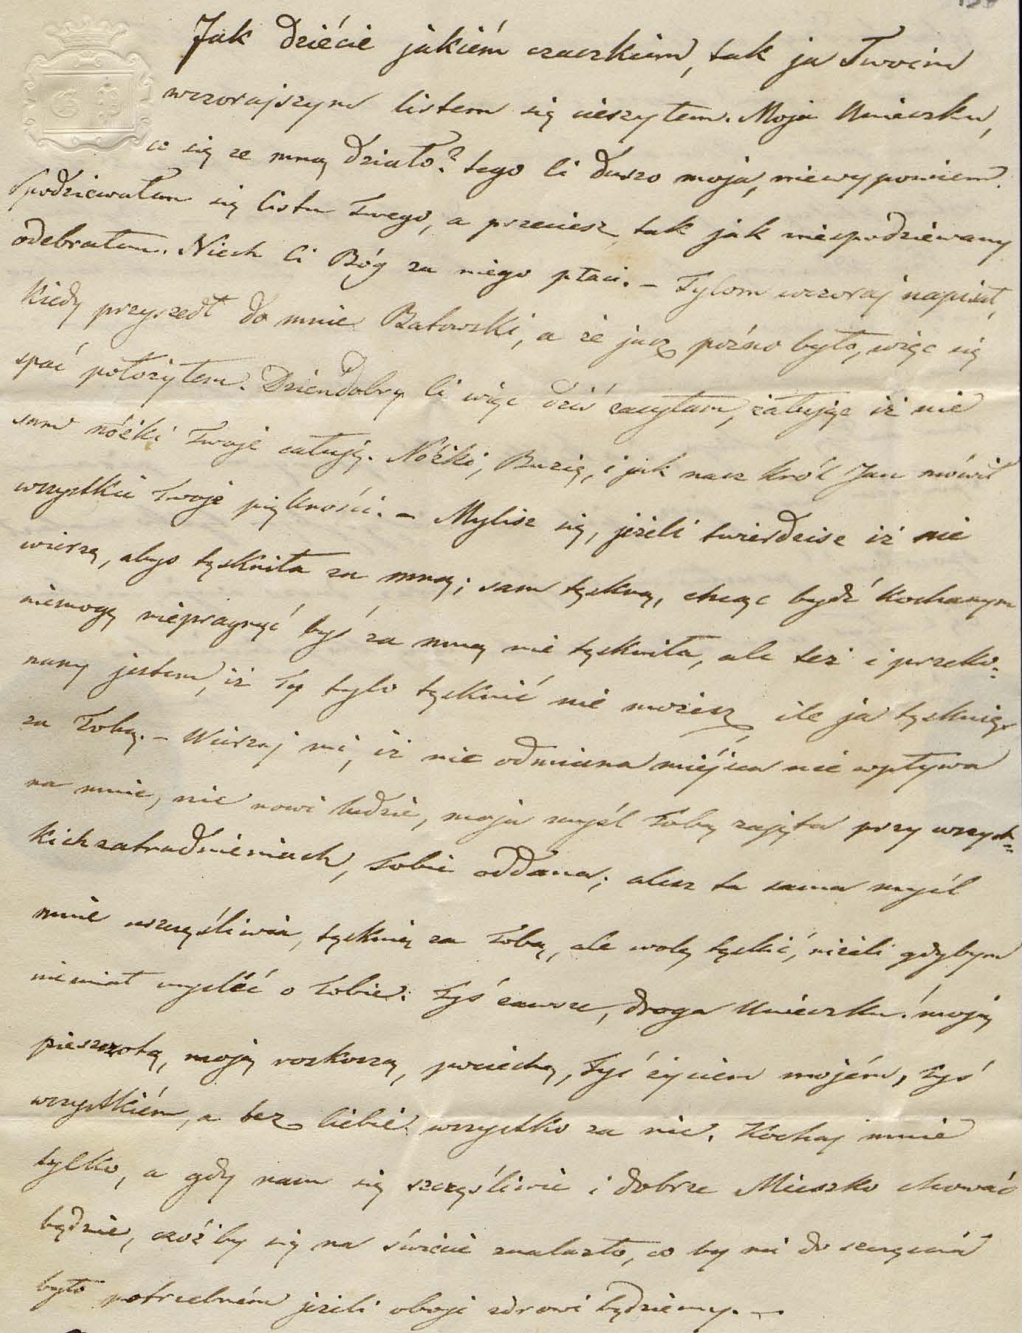 Jak dziécie jakiém czaczkiem, tak ja Twoim
wczorajszym listem się cieszyłem. Moja Unieczku,
co się ze mną działo? tego Ci duszo moja, niewypowiem.
Spodziewałam się listu Twego, a przeciesz tak jak niespodziewany
odebrałem. Niech Ci Bóg za niego płaci. – Tylom wczoraj napisał,
kiedy przyszedł do mnie Batowski, a że jusz późno było, więc się
spać położyłem. Dzieńdobry Ci więc dziś zasyłam, żałując iż nie
sam nóżki Twoje całuję. Nóżki, Buzię, i jak nasz król Jan mówił
wszystkie Twoje piękności. – Mylisz się, jeżeli twierdzisz iż nie
wierzę, abyś tęskniła za mną; sam tęsknię, chcąc bydź kochanym
niemogę niepragnąć byś za mną nie tęskniła, ale też i przeko=
nany jestem, iż Ty tylo tęsknić nie możesz ile ja tęsknię
za Tobą. – Wierzaj mi, iż nic odmiana miéjsca nie wpływa
na mnie, nic nowi ludzie, moja myśl Tobą zajęta przy wszyst=
kich zatrudnieniach, Tobie oddana; alesz ta sama myśl
mnie uszczęśliwia, tęsknię za Tobą, ale wolę tęsknić, niżeli gdybym
niemiał myśléć o Tobie. Tyś zawsze, droga Unieczku! moją
pieszczotą, moją roskoszą, pociechą, Tyś życiem mojém, Tyś
wszystkiém, a bez Ciebie wszystko za nic. Kochaj mnie
tylko, a gdy nam się szczęśliwie i dobrze Mieszko chować
będzie, cóżby się na świecie znalazło, co by mi do szczęścia
było potrzebném jeżeli oboje zdrowi będziemy. –